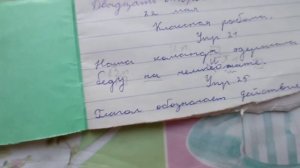 Двадцать
22 мая
Классная работа.
Упр 21
Наша команда одержала
беду на чемпионате.
Упр 25
Глагол обозначает действие